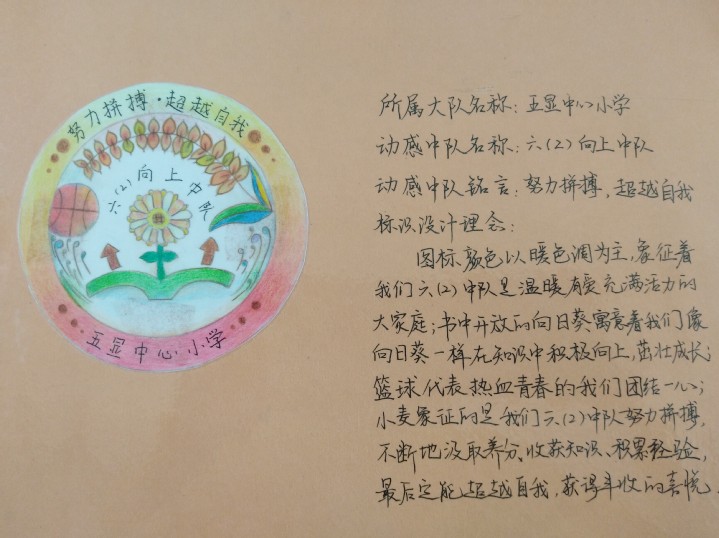 努力拼搏·超越自我
六(2)向上中队
五显中心小学
所属大队名称：五显中心小学
动感中队名称：六(2)向上中队
动感中队铭言：努力拼搏，超越自我
标识设计理念：
图标颜色以暖色调为主，象征着
我们六(2)中队是温暖有爱充满活力的
大家庭；书中开放的向日葵寓意着我们像
向日葵一样在知识中积极向上，茁壮成长；
篮球代表热血青春的我们团结一心；
小麦象征的是我们六(2)中队努力拼搏，
不断地汲取养分、收获知识、积累经验，
最后定能超越自我，获得丰收的喜悦。